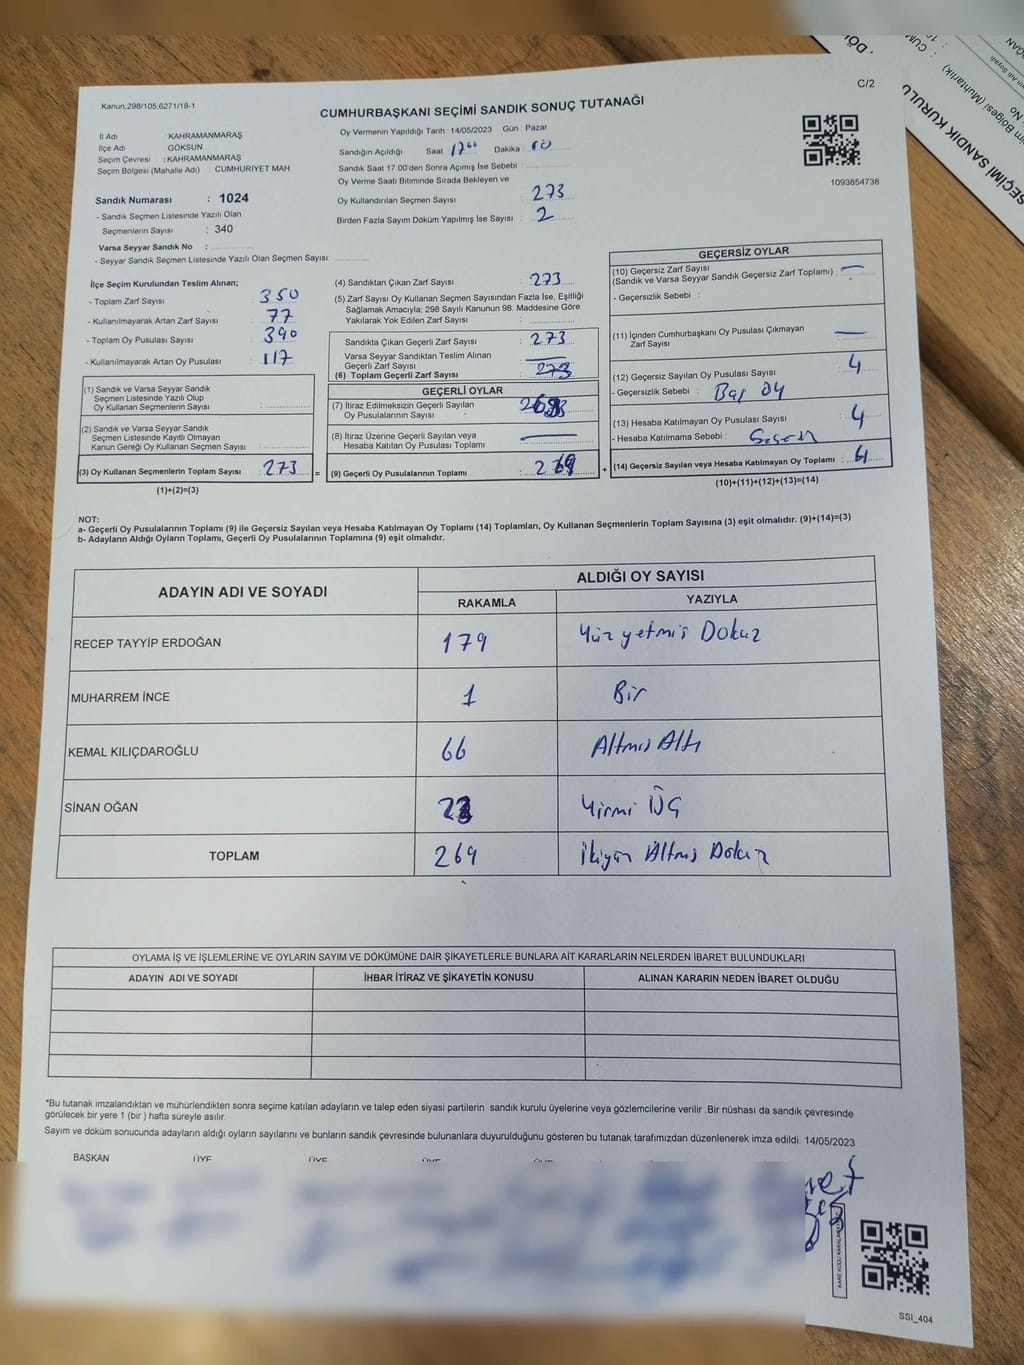 Kanun.298/105,6271/18-1
C/2
CUMHURBAŞKANI SEÇİMİ SANDIK SONUÇ TUTANAĞI
İl Adı : KAHRAMANMARAŞ
İlçe Adı : GÖKSUN
Seçim Çevresi : KAHRAMANMARAŞ
Seçim Bölgesi (Mahalle Adı) CUMHURİYET MAH
Sandık Numarası : 1024
- Sandık Seçmen Listesinde Yazılı Olan
Seçmenlerin Sayısı : 340
Varsa Seyyar Sandık No :
- Seyyar Sandık Seçmen Listesinde Yazılı Olan Seçmen Sayısı:
Oy Vermenin Yapıldığı Tarih : 14/05/2023 Gün : Pazar
Sandığın Açıldığı Saat 17 00 Dakika : 10
Sandık Saat 17:00'den Sonra Açımış İse Sebebi :
Oy Verme Saati Bitiminde Sırada Bekleyen ve
Oy Kullandırılan Seçmen Sayısı : 273
Birden Fazla Sayım Döküm Yapılmış İse Sayısı : 2
1093854738
İlçe Seçim Kurulundan Teslim Alınan;
- Toplam Zarf Sayısı : 350
- Kullanılmayarak Artan Zarf Sayısı : 77
- Toplam Oy Pusulası Sayısı : 390
- Kullanılmayarak Artan Oy Pusulası : 117
(1) Sandık ve Varsa Seyyar Sandık
Seçmen Listesinde Yazılı Olup
Oy Kullanan Seçmenlerin Sayısı :
(2) Sandık ve Varsa Seyyar Sandık
Seçmen Listesinde Kayıtlı Olmayan
Kanun Gereği Oy Kullanan Seçmen Sayısı :
(3) Oy Kullanan Seçmenlerin Toplam Sayısı : 273 =
(1)+(2)=(3)
(4) Sandıktan Çıkan Zarf Sayısı : 273
(5) Zarf Sayısı Oy Kullanan Seçmen Sayısından Fazla İse, Eşitliği
Sağlamak Amacıyla, 298 Sayılı Kanunun 98. Maddesine Göre
Yakılarak Yok Edilen Zarf Sayısı :
Sandıkta Çıkan Geçerli Zarf Sayısı : 273
Varsa Seyyar Sandıktan Teslim Alınan
Geçerli Zarf Sayısı :
(6) Toplam Geçerli Zarf Sayısı : 273
GEÇERLİ OYLAR
(7) İtiraz Edilmeksizin Geçerli Sayılan
Oy Pusulalarının Sayısı :
(8) İtiraz Üzerine Geçerli Sayılan veya
Hesaba Katılan Oy Pusulası Toplamı :
(9) Geçerli Oy Pusulalarının Toplamı : 269 +
GEÇERSİZ OYLAR
(10) Geçersiz Zarf Sayısı
(Sandık ve Varsa Seyyar Sandık Geçersiz Zarf Toplamı) :
- Geçersizlik Sebebi :
(11) İçinden Cumhurbaşkanı Oy Pusulası Çıkmayan
Zarf Sayısı :
(12) Geçersiz Sayılan Oy Pusulası Sayısı : 4
- Geçersizlik Sebebi : Boş Oy
(13) Hesaba Katılmayan Oy Pusulası Sayısı : 4
- Hesaba Katılmama Sebebi :
(14) Geçersiz Sayılan veya Hesaba Katılmayan Oy Toplamı : 4
(10)+(11)+(12)+(13)=(14)
NOT:
a- Geçerli Oy Pusulalarının Toplamı (9) ile Geçersiz Sayılan veya Hesaba Katılmayan Oy Toplamı (14) Toplamları, Oy Kullanan Seçmenlerin Toplam Sayısına (3) eşit olmalıdır. (9)+(14)=(3)
b- Adayların Aldığı Oyların Toplamı, Geçerli Oy Pusulalarının Toplamına (9) eşit olmalıdır.
ADAYIN ADI VE SOYADI
ALDIĞI OY SAYISI
RAKAMLA YAZIYLA
RECEP TAYYİP ERDOĞAN 179 Yüz yetmiş Dokuz
MUHARREM İNCE 1 Bir
KEMAL KILIÇDAROĞLU 66 Altmış Altı
SİNAN OĞAN 23 Yirmi Üç
TOPLAM 269 İkiyüz Altmış Dokuz
OYLAMA İŞ VE İŞLEMLERİNE VE OYLARIN SAYIM VE DÖKÜMÜNE DAİR ŞİKAYETLERLE BUNLARA AİT KARARLARIN NELERDEN İBARET BULUNDUKLARI
ADAYIN ADI VE SOYADI İHBAR İTİRAZ VE ŞİKAYETİN KONUSU ALINAN KARARIN NEDEN İBARET OLDUĞU
*Bu tutanak imzalandıktan ve mühürlendikten sonra seçime katılan adayların ve talep eden siyasi partilerin sandık kurulu üyelerine veya gözlemcilerine verilir .Bir nüshası da sandık çevresinde
görülecek bir yere 1 (bir ) hafta süreyle asılır.
Sayım ve döküm sonucunda adayların aldığı oyların sayılarını ve bunların sandık çevresinde bulunanlara duyurulduğunu gösteren bu tutanak tarafımızdan düzenlenerek imza edildi. 14/05/2023
BAŞKAN ÜYE ÜYE
SSI_404
SEÇİMİ SANDIK KURULU
Bölgesi (Muhtarlık)